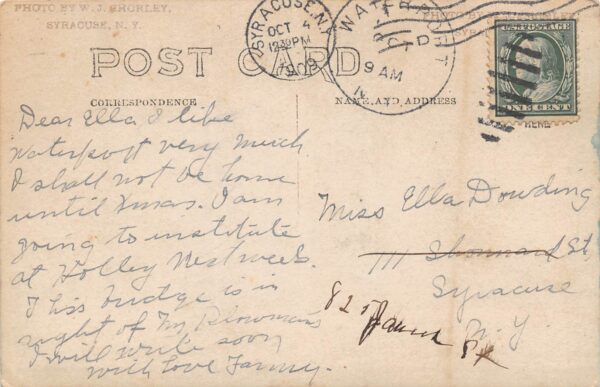 PHOTO BY W. J. SHORLEY,
SYRACUSE, N. Y.
SYRACUSE, N.Y.
OCT 4
1230PM
1909
WATERPORT
9 AM
N.Y.
U.S. POSTAGE
ONE CENT
POST CARD
CORRESPONDENCE
NAME AND ADDRESS
HERE
Dear Ella I like
Waterport very much
I shall not be home
until Xmas. I am
going to institute
at Holley Next week.
This bridge is in
sight of Mr Plowman's
I will write soon
with love Fanny.
Miss Ella Dowding
111 Shonnard St,
Syracuse
N. Y
825
James St